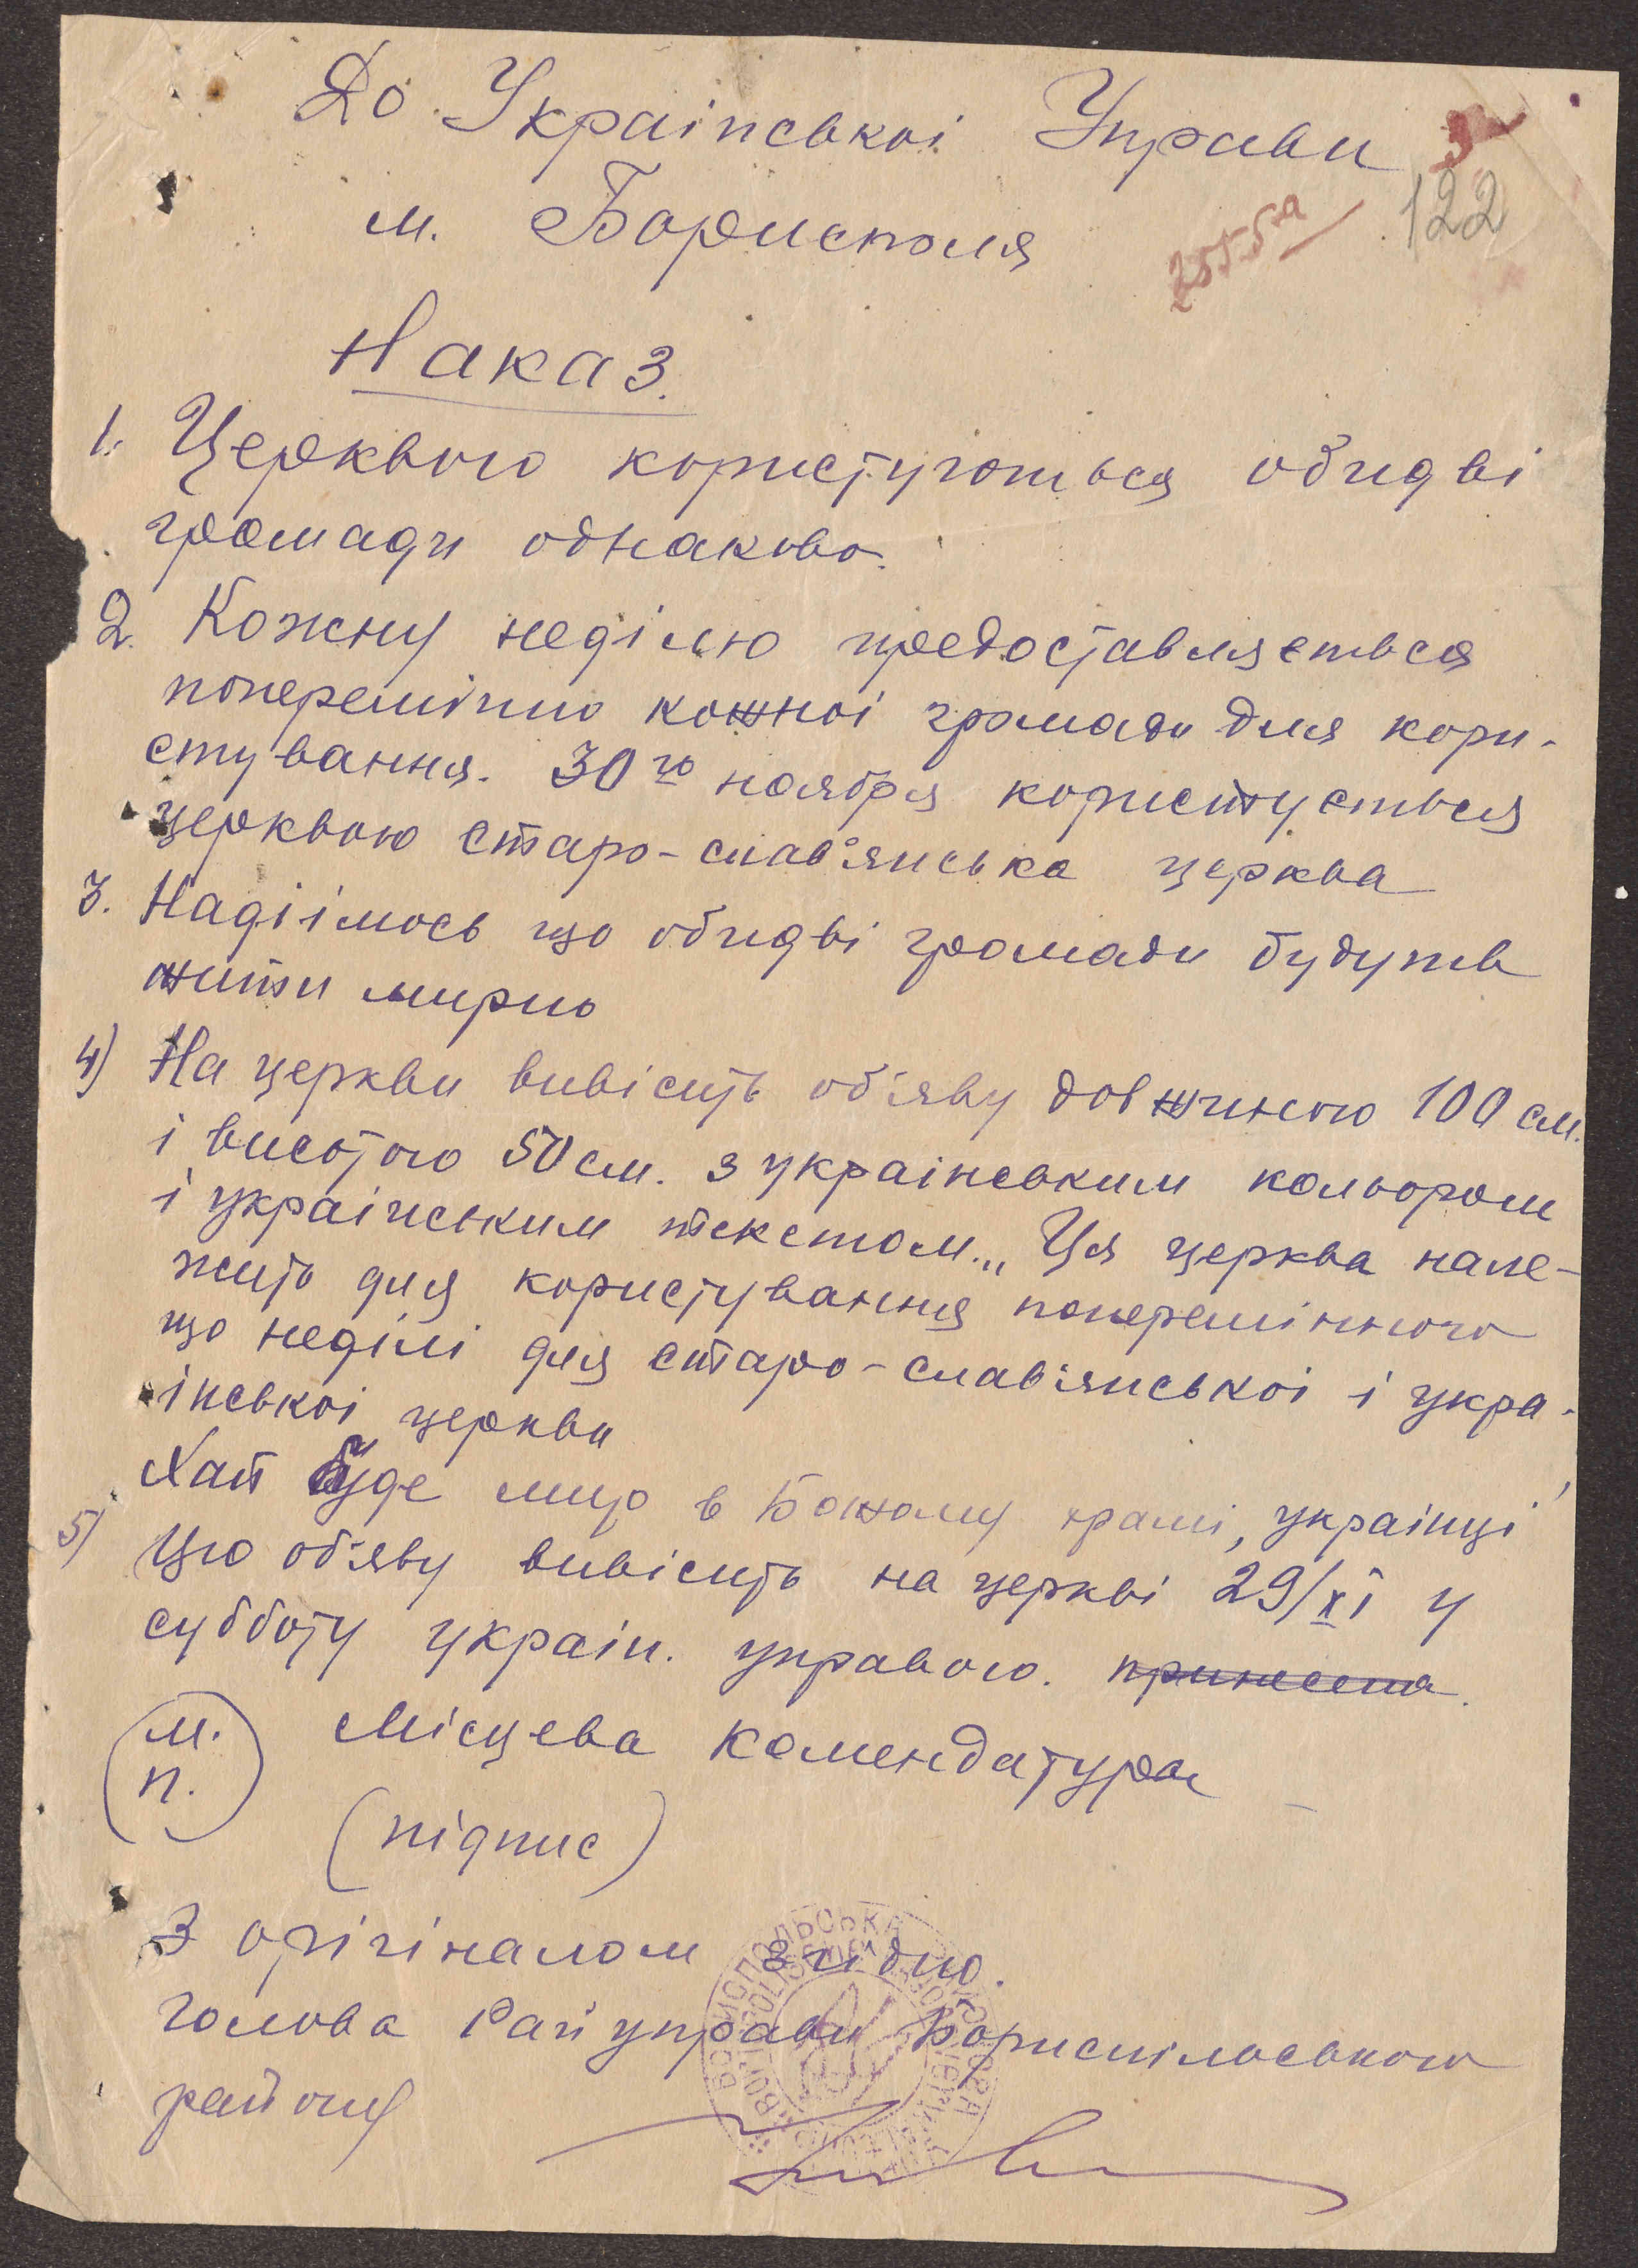 До Украінськоі Управи
122
м. Борисполя
255 5а
Наказ.
1. Церквою користуються обидві
громади однаково.
2. Кожну неділю предоставляється
поперемінно кожноі громади для кори-
стування. 30го ноября користується
церквою старо-слав'янська церква
3. Надіімось що обидві громади будуть
жити мирно
4) На церкви вивісить об'яву довжиною 100 см.
і висотою 50 см. з украінським кольором
і украінським текстом „Ця церква нале-
жить для користування поперемінного
що неділі для старо-слав'янськоі і укра-
інськоі церкви
Хай буде мир в Божому храмі, украінці
5) Цю об'яву вивісить на церкві 29/XI у
субботу украін. управою. принесена.
м.п. Місцева комендатура
(підпис)
З орігіналом згідно.
Голова Райуправи Бориспільського
району